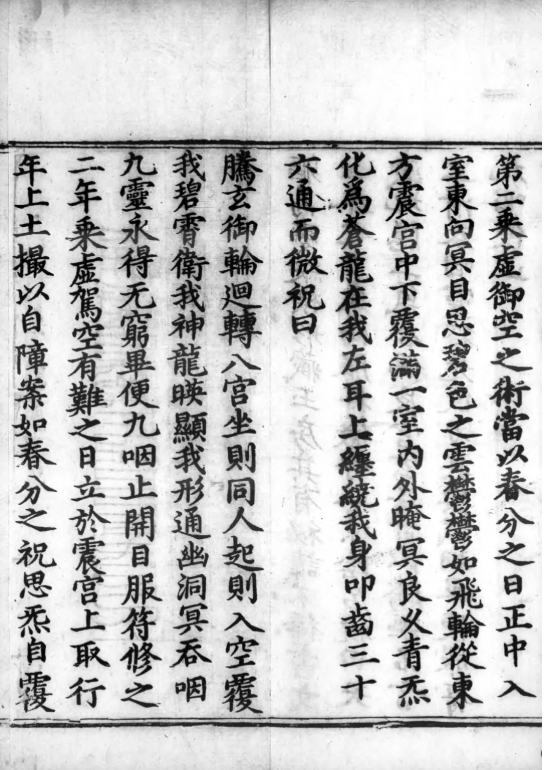 第二乘虛御空之術當以春分之日正中入
室東向冥目思碧色之雲鬱鬱如飛輪從東
方震宮中下覆滿一室內外晻冥良乆青炁
化爲蒼龍在我左耳上纏繞我身叩齒三十
六通而微祝曰
騰玄御輪迴轉八宮坐則同人起則入空覆
我碧霄衛我神龍暎顯我形通幽洞冥吞咽
九靈永得无窮畢便九咽止開目服符修之
二年乘虛駕空有難之日立於震宮上取行
年上土撮以自障案如春分之祝思炁自覆